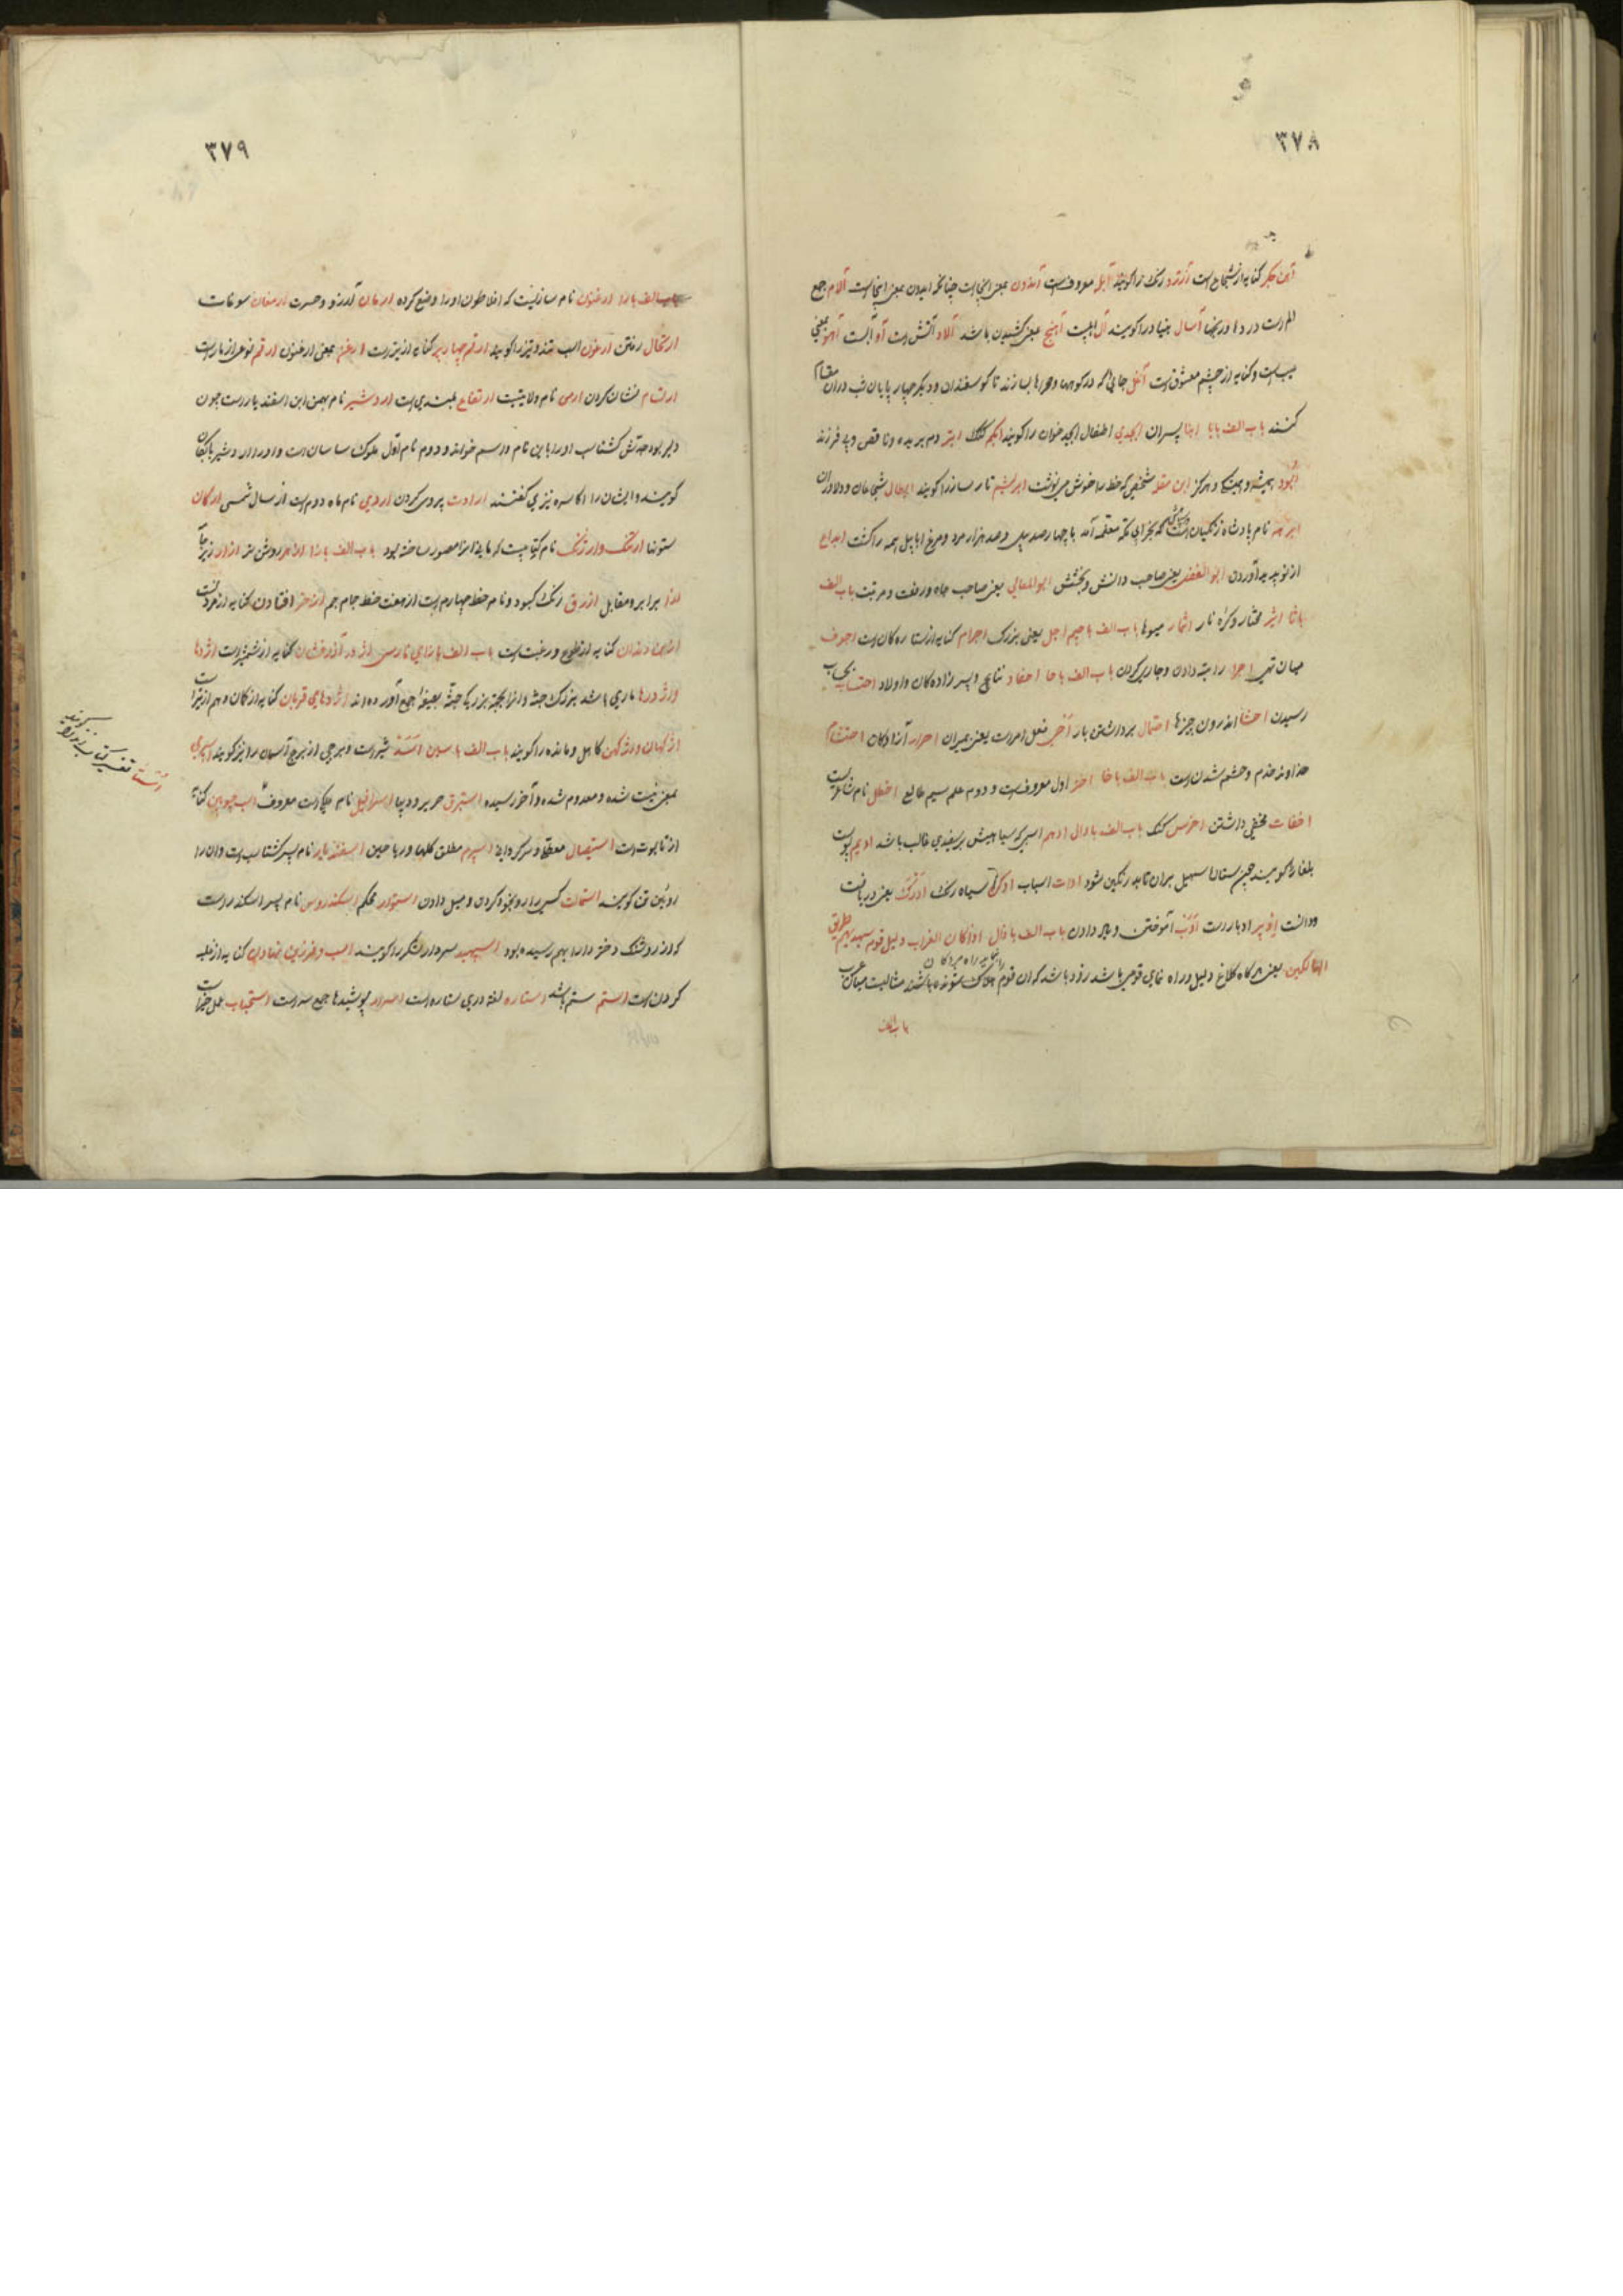 ٣٧٨
آهن جگر کنایه از شجاع است آزرد رنگ را گویند آبله معروفست آندون بمعنی اینجا است چنانکه ایدون بمعنی اینجا است آلام جمع
الم است درد و رنجها آسال بنیاد را گویند آل آهنج بمعنی کشیدن باشد آلاو آتش است آو آبست آهو بمعنی
عیب است و کنایه از چشم معشوق است آغل جائی که در کوهها و صحراها سازند تا گوسفندان و دیگر چهار پایان شب دران مقام
کنند باب الف بابا ابنا پسران ابجدی اطفال ابجد خوان را گویند ابکم گنگ ابتر دم بریده و ناقص و بی فرزند
همیشه و همیشگی و هرگز ابن مقله شخصی که خط را خوش می نوشت ابریشم تار ساز را گویند ابطال شجاعان و دلاوران
ابرهه نام پادشاه زنگیان است که بخرابی مکه معظمه آمد با چهارصد پیل و صد هزار مرد و مرغ ابابیل همه را کشت ابداع
از نو پدید آوردن ابوالفضل یعنی صاحب دانش و بخشش ابوالمعالی یعنی صاحب جاه و رفعت و مرتبت باب الف
باثا اثیر مختار و کره نار اثمار میوها باب الف باجیم اجل یعنی بزرگ اجرام کنایه از ستاره کان است اجوف
میان تهی اجرا راتبه دادن و جاری کردن باب الف باحا احفاد نتایج و پسر زاده کان و اولاد احتساب بحساب
رسیدن احشا اندرون چیزها احتمال برداشتن بار فعل امر است یعنی بمیران احرار آزادگان احتشام
خداوند خدم و حشم شدن است باب الف باخا اختر اول معروفست و دوم علم سیم طالع اخطل نام شاعریست
اخفات مخفی داشتن اخرس گنگ باب الف بادال ادهم اسپی که سیاهیش بر سفیدی غالب باشد ادیم پوست
بلغار را گویند چون سهیل بران تابد رنگین شود ادوات اسباب ادکن سیاه رنگ ادرک یعنی دریافت
و دانست ادبیر ادبار است ادب آموختن و یاد دادن باب الف باذال اذا کان الغراب دلیل قوم سیهدیهم طریق
الهالکین یعنی هرگاه کلاغ دلیل و راه نمای قومی باشد زود باشد که ان قوم هلاک شونده باشند
باب الف
٣٧٩
باب الف بارا ارغنون نام سازیست که افلاطون او را وضع کرده ارمان آرزو و حسرت ارمغان سوغات
ارتحال رفتن ارغون اسب تند و تیز را گویند ارقم چهار پر کنایه از تیر است ارغن بمعنی ارغنون ارقم نوعی از مار است
ارتسام نشان کردن ارمن نام ولایتیست ارتفاع بلندی است اردشیر نام بهمن ابن اسفندیار است چون
دلیر بوده جدش گشتاسب او را باین نام و اسم خوانده و دوم نام اول ملوک ساسان است و او را اردشیر بابکان
گویند و ایشان را اکاسره نیز می گفتند ارادت پیروی کردن اردی نام ماه دوم است از سال شمسی ارکان
ستونها ارتنگ و ارژنگ نام کتابیست که مانی انرا مصور ساخته بود باب الف بازا ازهر روشن تر ازار زیر جامه
ازا برابر و مقابل ازرق رنگ کبود و نام خط چهارم است از هفت خط جام جم از خر افتادن کنایه از مردنست
کنایه از طمع و رغبت است باب الف بازای فارسی کنایه از شمشیر است اژدها
و اژدرها ماری باشد بزرگ جثه اژدهای قربان کنایه از کمان و هم از تیر است
اژکهان و اژکهن کاهل و مانده را گویند باب الف باسین اسد شیر است و برجی از برج آسمان را نیز گویند اسپری
بمعنی نیست شده و معدوم شده و آخر رسیده استبرق حریر و دیبا اسرافیل نام ملکی است معروف اسب چوبین کنایه
از تابوت است استیصال و سرگردانی اسپرم مطلق گلها و ریاحین اسفندیار نام پسر گشتاسب است و ان را
روئین تن گویند استمالت کسی را رو بخود کردن و میل دادن استوار محکم اسکندروس نام پسر اسکندر است
که از روشنک دختر دارا بهم رسیده بود اسپهبد سردار لشکر را گویند اسب و فرزین نهادن کنایه از غلبه
کردن است استم ستم باشد استاره لغة دری ستاره است اسرار پوشیدها جمع سر است استحباب
تفسیر کتاب زند